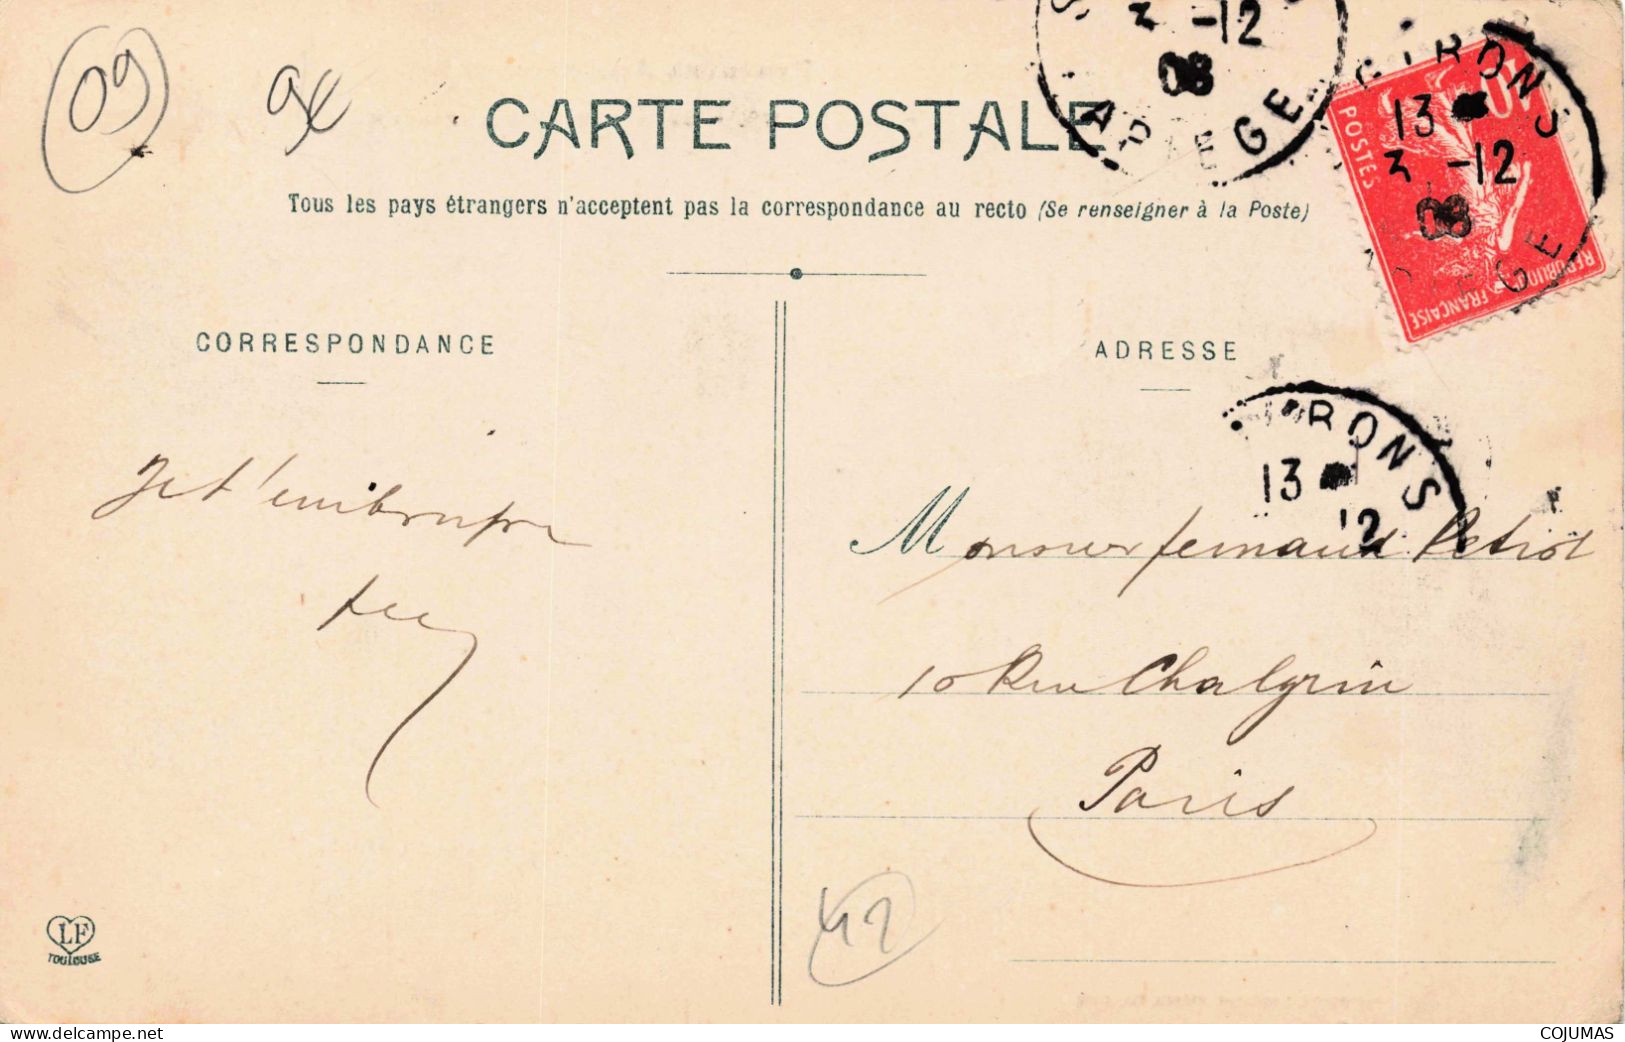 09
CARTE POSTALE
3 -12
08
ARIEGE
Tous les pays étrangers n'acceptent pas la correspondance au recto (Se renseigner à la Poste)
GIRONS
13
3 -12
08
GE
POSTES
10
REPUBLIQUE FRANÇAISE
CORRESPONDANCE
ADRESSE
RONS
13
12
Je t'embrasse
Monsieur fernand Petriot
10 Rue Chalgrin
Paris
42
LF
TOULOUSE
delcampe.net
COJUMAS